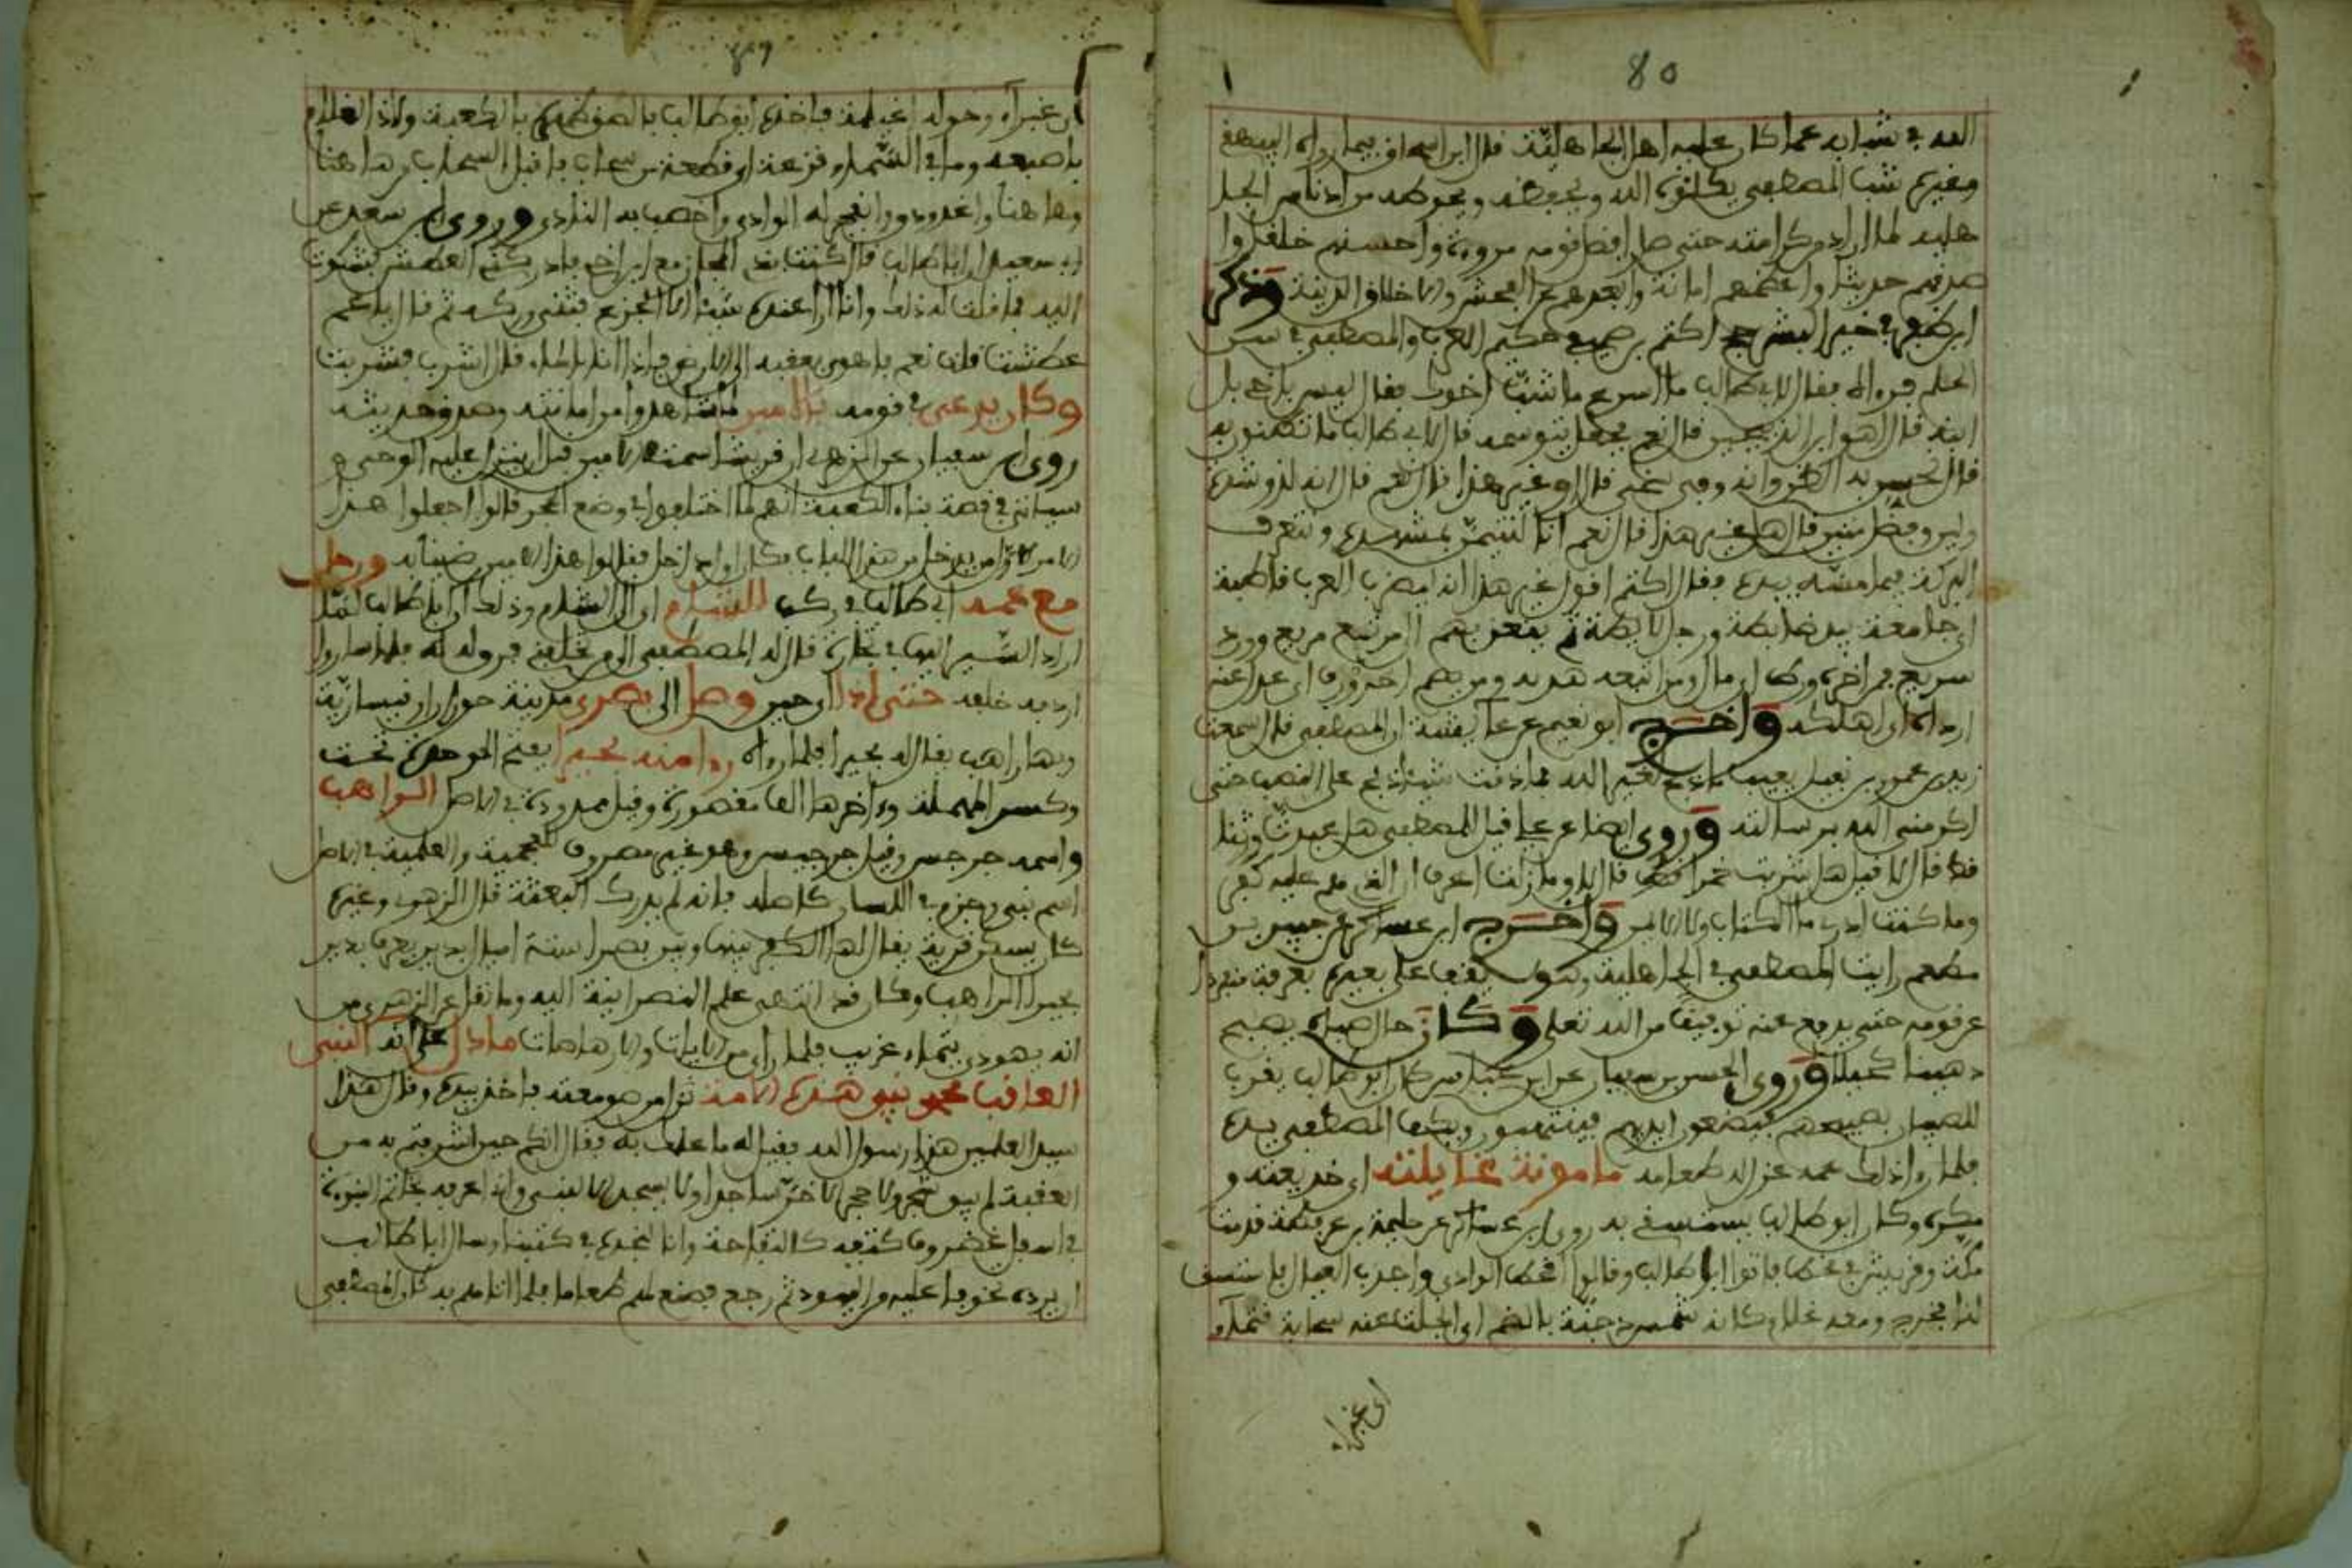 80
الله في شبابه عما كان عليه اهل الجاهلية قال ابن اسحاق فيما رواه البيهقي
وغيره شب المصطفى يكلؤه الله ويحفظه ويحوطه من ادناس الجا
هلية لما اراد من كرامته حتى صار افضل قومه مروءة واحسنهم خلقا وا
صدقهم حديثا واعظمهم امانة وابعدهم عن الفحش والاخلاق الدنية وذكر
ابن ظفر في خير البشر اكثم بن صيفي حكيم العرب والمصطفى في سن
الحلم فرءاه فقال لابي طالب ما اسرع ما شب اخوك فقال ليس باخي بل
ابن قال اهو ابن الذبيحين قال نعم فجعل يتوسمه قال لابي طالب ما تظنون به
قال نحسن به الظن وانه وفي سخي قال او غير هذا قال نعم قال انه لذو شدة
ولين وفضل متين قال هل غير هذا قال نعم انا لنتيمن بمشهده ونتعرف
البركة فيما مسه بيده فقال اكثم اقول غير هذا انه ليضرب العرب قاطبة
اي جامعة بيد خابطة ورجل لابطة ثم ينعق بهم الى مرتع مريع وورد
سريع فمن اخر
اي اهلكه واخرج ابو نعيم عن عائشة ان المصطفى قال سمعت
زيد بن عمرو بن نفيل يعيب ما ذبح لغير الله فما ذقت شيئا ذبح على النصب حتى
اكرمني الله برسالته وروى ايضا عن علي قيل للمصطفى هل عبدت وثنا
قط قال لا قيل هل شربت خمرا قط قال لا وما زلت اعرف ان الذي هم عليه كفر
وما كنت ادري ما الكتاب ولا الايمن واخرج ابن عساكر عن جبير بن
مطعم رايت المصطفى في الجاهلية وهو يقف على بعيره بعرفة من دون
قومه حتى يدفع معهم توفيقا من الله تعلى وكان حال صباه يصبح
دهينا كحيلا وروى الحسن بن سفيان عن ابن كان ابو طالب يقرب
للصبيان بصبيحهم فيضعون ايديهم فينتهبون ويكف المصطفى يده
فلما راى ذلك عمه عزل له طعامه مامونة غايلته اي خديعته و
مكره وكان ابو طالب يستسقي به روى ابن عساكر عن جلهمة بن عرفطة قدمت
مكة وقريش في قحط فاتوا ابا طالب وقالوا اقحط الوادي واجدب العيال فاستسق
لنا فخرج ومعه غلام كانه شمس دجنة بالضم اي انجلت عنه سحابة قتماء
اي غبراء
اي غبراء وحوله اغيلمة فاخذه ابو طالب فالصق ظهره بالكعبة ولاذ الغلام
باصبعه وما في السماء قزعة اي قطعة من سحاب فاقبل السحاب من هاهنا
وهاهنا واغدودق وانفجر له الوادي واخصب به النادي وروى ابن سعد عن
ابن سعيد ان ابا طالب قال كنت بذي المجاز مع ابن اخي فادركني العطش فشكوت
اليه فما قلت له ذلك وانا ارى عنده شيئا الا الجزع فثنى وركه ثم قال يا عم
عطشت قلت نعم فاهوى بعقبه الى الارض فاذا انا بالماء قال اشرب فشربت
وكان يدعى في قومه بالامين لما شاهدوا من امانته وصدق حديثه
روى ابن سفيان عن الزهري ان قريشا سمته الامين قبل ان ينزل عليه الوحي و
سياتي في قصة بناء الكعبة انهم لما اختلفوا في وضع الحجر قالوا اجعلوا هذا
الامر لاول من يدخل من هذا الباب فكان اول داخل فقالوا هذا الامين رضينا به ورحل
مع عمه ابي طالب في ركب الشام اي الى الشام وذلك ان ابا طالب لما
اراد السير اليها في تجارة قال له المصطفى الى من تخلفني فرق له فلما ساروا
اردفه خلفه حتى اذا اي حين وصل الى بصرى مدينة حوران او قيسارية
وبها راهب يقال له بحيرا فلما راه رءا منه بحيرا بفتح الموحدة تحت
وكسر المهملة وءاخرها الف مقصورة وقيل ممدودة في الاصل الراهب
واسمه جرجس وقيل جرجيس وهو غير مصروف للعجمية والعلمية في الاصل
اسم نبي وجزم في اللسان كاصله بانه لم يدرك البعثة قال الزهري وغيره
كان يسكن قرية يقال لها الكفر بينها وبين بصرى ستة اميال بدير يعرف بدير
بحيرا الراهب وكان قد انتهى علم النصرانية اليه وما نقل عن الزهري من
انه يهودي بتيماء غريب فلما راى من الايات والارهاصات ما دل على انه النبي
العاقب فهو نبي هذه الامة نزل من صومعته فاخذ بيده وقال هذا
سيد العلمين هذا رسول الله فقيل له ما علمك به فقال انكم حين اشرفتم به من
العقبة لم يبق شجر ولا حجر الا خر ساجدا ولا يسجد الا لنبي وانا اعرفه بخاتم النبوة
في اسفل غضروف كتفه كالتفاحة وانا نجده في كتبنا وسال ابا طالب
ان يرده خوفا عليه من اليهود ثم رجع فصنع لهم طعاما فلما اتاهم به كان المصطفى